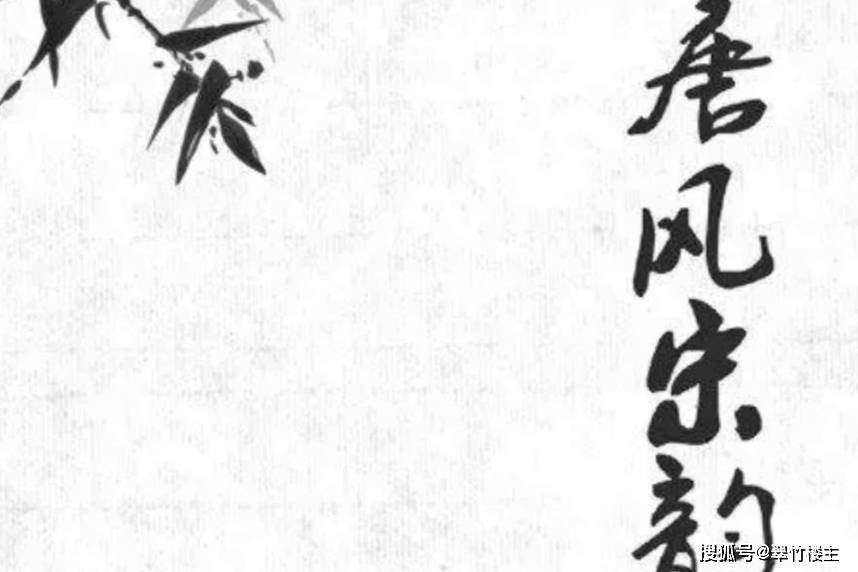 唐风宋韵
搜狐号@翠竹楼主